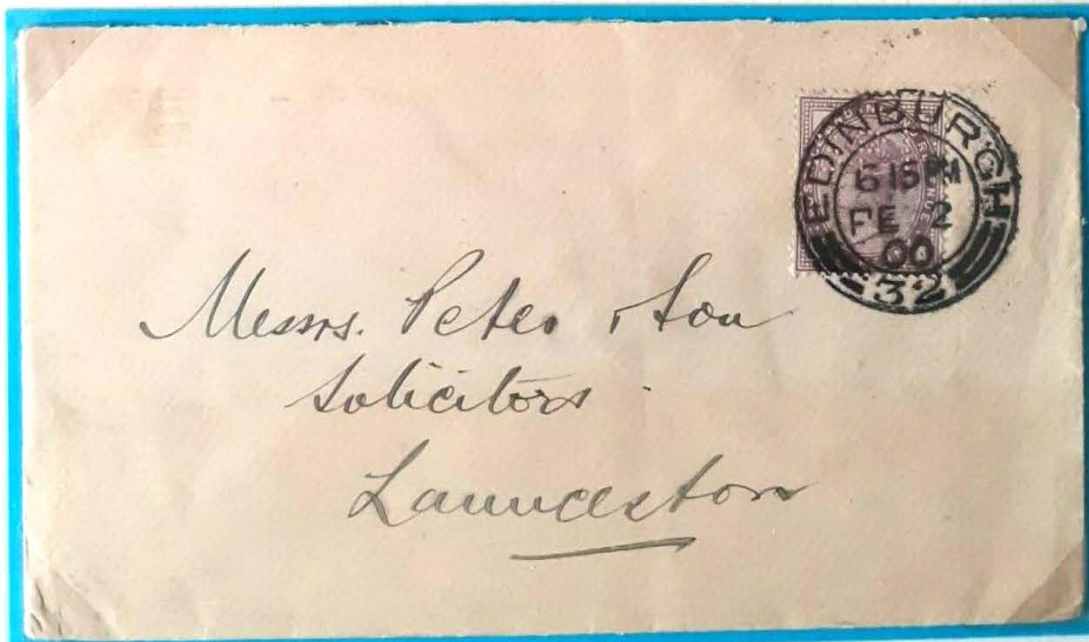 EDINBURGH
6 15 PM
FE 2
00
32
Messrs. Peter & Son
Solicitors
Launceston